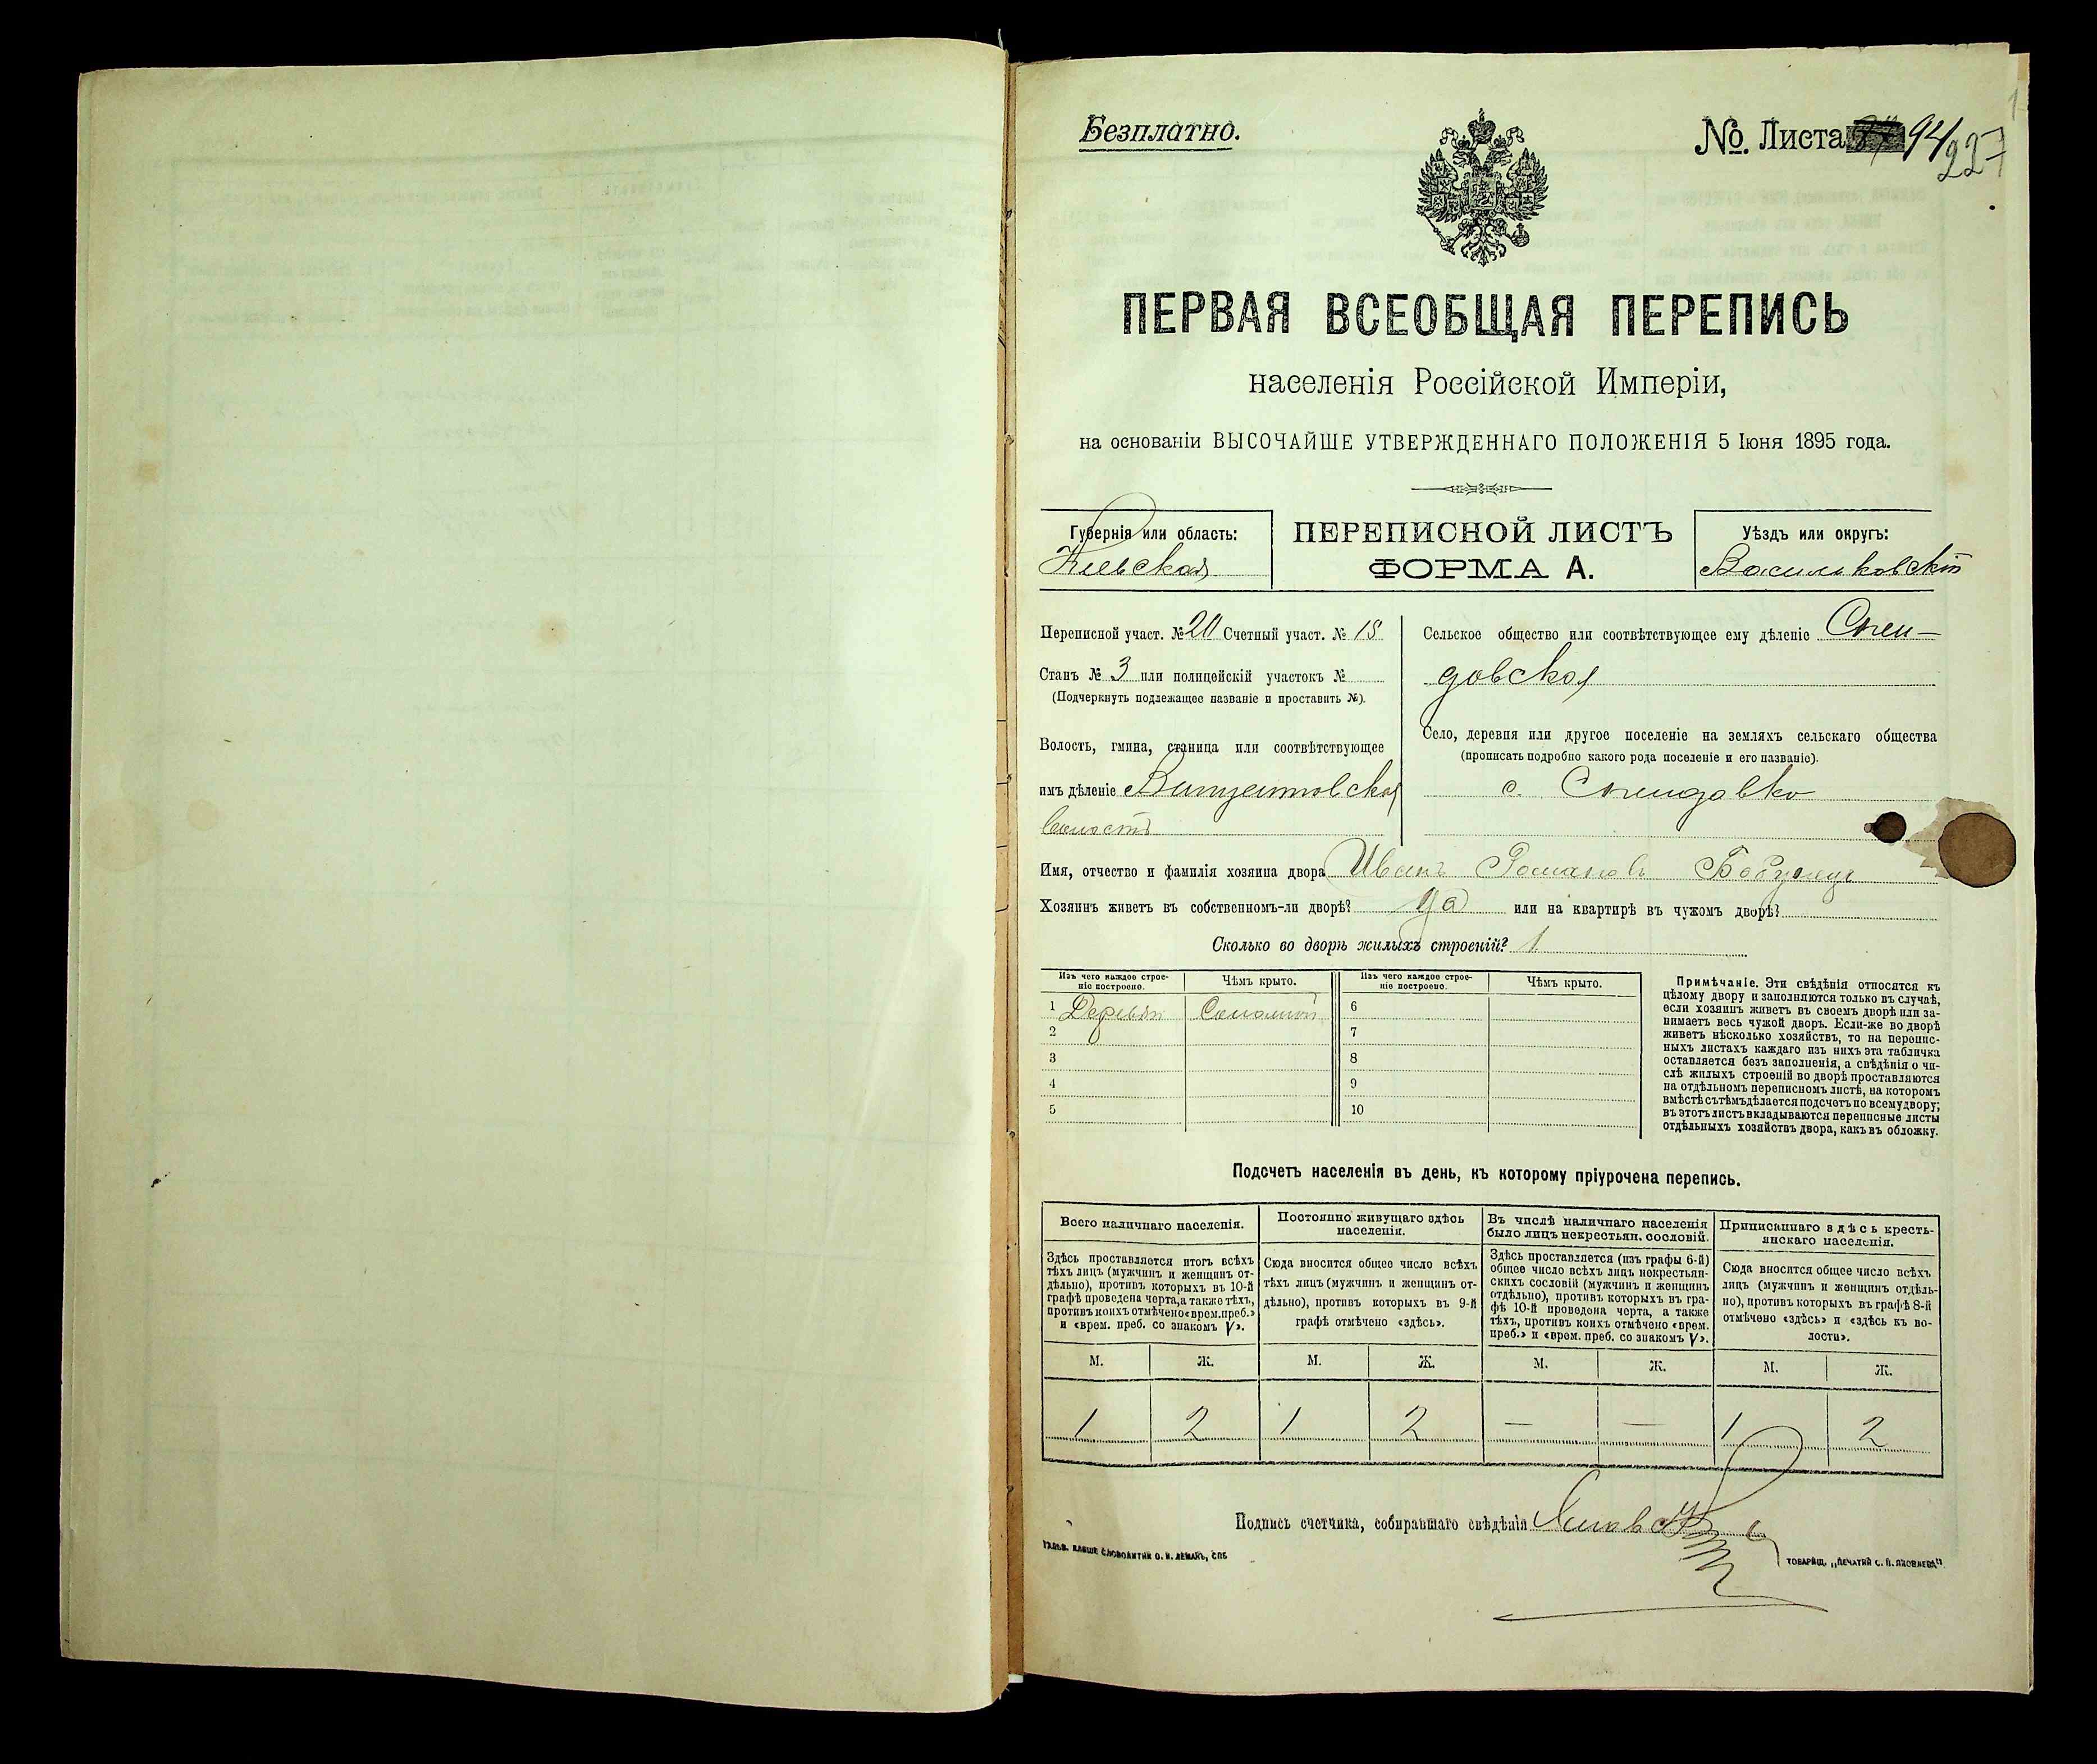 Безплатно.
№. Листа 94
227
ПЕРВАЯ ВСЕОБЩАЯ ПЕРЕПИСЬ
населенія Россійской Имперіи,
на основаніи ВЫСОЧАЙШЕ УТВЕРЖДЕННАГО ПОЛОЖЕНІЯ 5 Іюня 1895 года.
Губернія или область:
Кіевская
ПЕРЕПИСНОЙ ЛИСТЪ
ФОРМА А.
Уѣздъ или округъ:
Васильковскій
Переписной участ. № 20 Счетный участ. № 15
Станъ № 3 или полицейскій участокъ №
(Подчеркнуть подлежащее названіе и проставить №).
Волость, гмина, станица или соотвѣтствующее
имъ дѣленіе Винцентовская
волость
Сельское общество или соотвѣтствующее ему дѣленіе Спен-
довская
Село, деревня или другое поселеніе на земляхъ сельскаго общества
(прописать подробно какого рода поселеніе и его названіе).
с. Спендовка
Имя, отчество и фамилія хозяина двора Иванъ Романовъ
Хозяинъ живетъ въ собственномъ-ли дворѣ? Да или на квартирѣ въ чужомъ дворѣ?
Сколько во дворѣ жилыхъ строеній? 1
Изъ чего каждое строе-
ніе построено.
Чѣмъ крыто.
Изъ чего каждое строе-
ніе построено.
Чѣмъ крыто.
1 Деревян Соломой 6
2 7
3 8
4 9
5 10
Примѣчаніе. Эти свѣдѣнія относятся къ
цѣлому двору и заполняются только въ случаѣ,
если хозяинъ живетъ въ своемъ дворѣ или за-
нимаетъ весь чужой дворъ. Если-же во дворѣ
живетъ нѣсколько хозяйствъ, то на перепис-
ныхъ листахъ каждаго изъ нихъ эта табличка
оставляется безъ заполненія, а свѣдѣнія о чи-
слѣ жилыхъ строеній во дворѣ проставляются
на отдѣльномъ переписномъ листѣ, на которомъ
вмѣстѣ съ тѣмъ дѣлается подсчетъ по всему двору;
въ этотъ листъ вкладываются переписные листы
отдѣльныхъ хозяйствъ двора, какъ въ обложку.
Подсчетъ населенія въ день, къ которому пріурочена перепись.
Всего наличнаго населенія.
Здѣсь проставляется итогъ всѣхъ
тѣхъ лицъ (мужчинъ и женщинъ от-
дѣльно), противъ которыхъ въ 10-й
графѣ проведена черта, а также тѣхъ,
противъ коихъ отмѣчено «врем. преб.»
и «врем. преб. со знакомъ V».
Постоянно живущаго здѣсь
населенія.
Сюда вносится общее число всѣхъ
тѣхъ лицъ (мужчинъ и женщинъ от-
дѣльно), противъ которыхъ въ 9-й
графѣ отмѣчено «здѣсь».
Въ числѣ наличнаго населенія
было лицъ некрестьян. сословій.
Здѣсь проставляется (изъ графы 6-й)
общее число всѣхъ лицъ некрестьян-
скихъ сословій (мужчинъ и женщинъ
отдѣльно), противъ которыхъ въ гра-
фѣ 10-й проведена черта, а также
тѣхъ, противъ коихъ отмѣчено «врем.
преб.» и «врем. преб. со знакомъ V».
Приписаннаго здѣсь кресть-
янскаго населенія.
Сюда вносится общее число всѣхъ
лицъ (мужчинъ и женщинъ отдѣль-
но), противъ которыхъ въ графѣ 8-й
отмѣчено «здѣсь» и «здѣсь къ во-
лости».
М. Ж. М. Ж. М. Ж. М. Ж.
1 2 1 2 — — 1 2
Подпись счетчика, собиравшаго свѣдѣнія
СЛОВОЛИТНИ О. И. ЛЕМАНЪ, СПБ
ТОВАРИЩ. „ПЕЧАТНЯ С. П. ЯКОВЛЕВА“